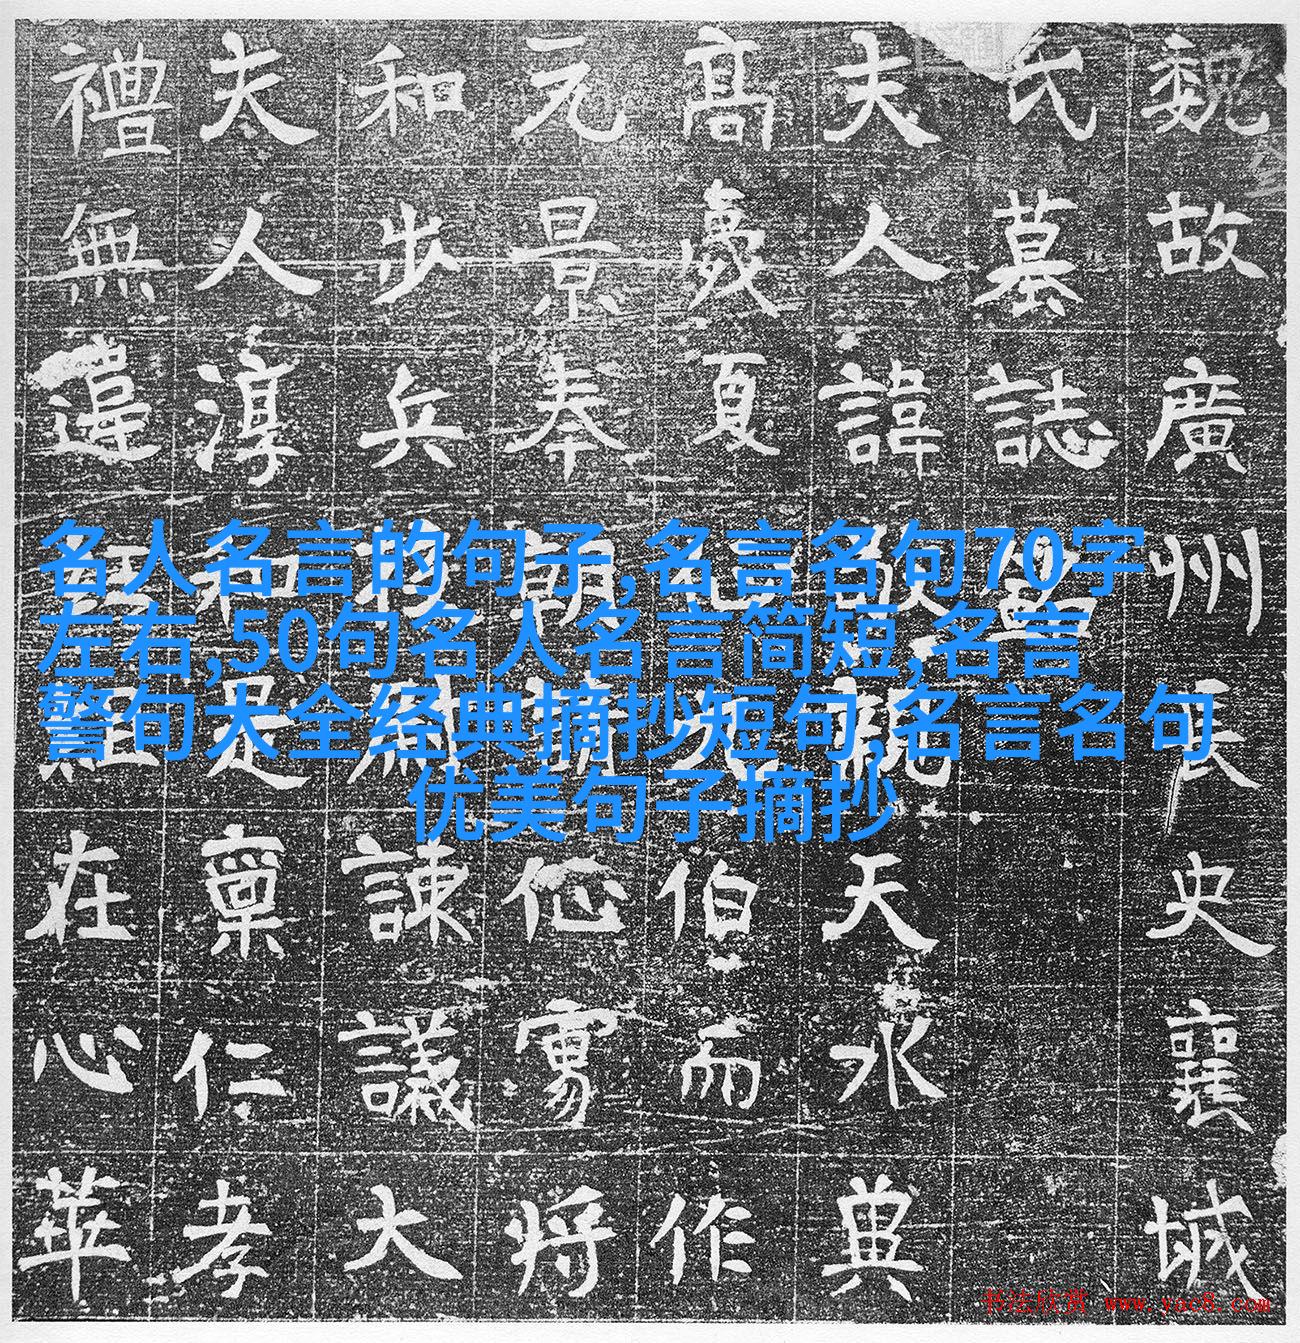 魏故廣州長史襄城
氏墓誌
夫人諱天水典
高夏伯而作
元景奉朝將
和步兵諫議大
夫人淳和是稟仁孝
禮無違在心華
名人名言的句子,名言名句70字
左右,50句名人名言简短,名言
警句大全经典摘抄短句,名言名句
优美句子摘抄
书法欣赏 www.yac8.com